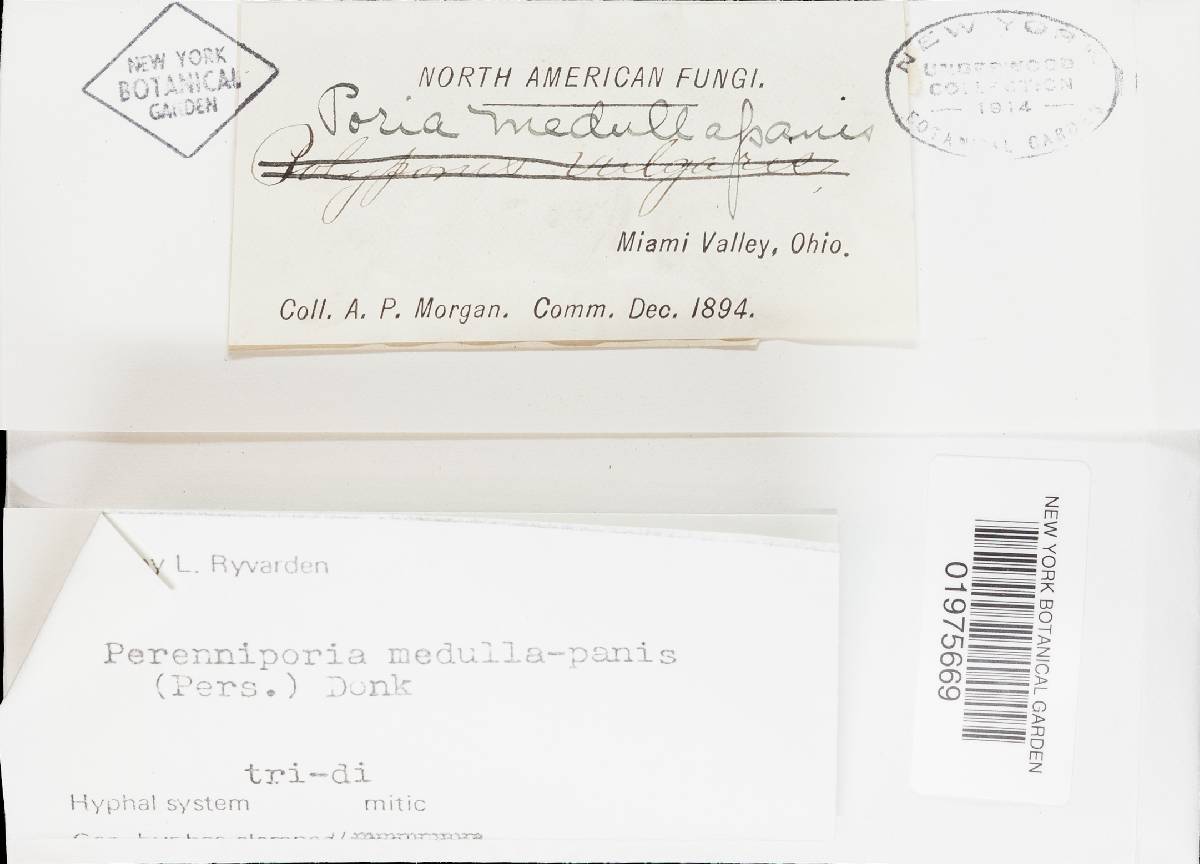 NEW YORK
BOTANICAL
GARDEN
NORTH AMERICAN FUNGI.
NEW YORK
UNDERWOOD
COLLECTION
1914
BOTANICAL GARDEN
Poria medullapanis
Polyporus vulgaris,
Miami Valley, Ohio.
Coll. A. P. Morgan. Comm. Dec. 1894.
y L. Ryvarden
Perenniporia medulla-panis
(Pers.) Donk
tri-di
Hyphal system mitic
NEW YORK BOTANICAL GARDEN
01975669